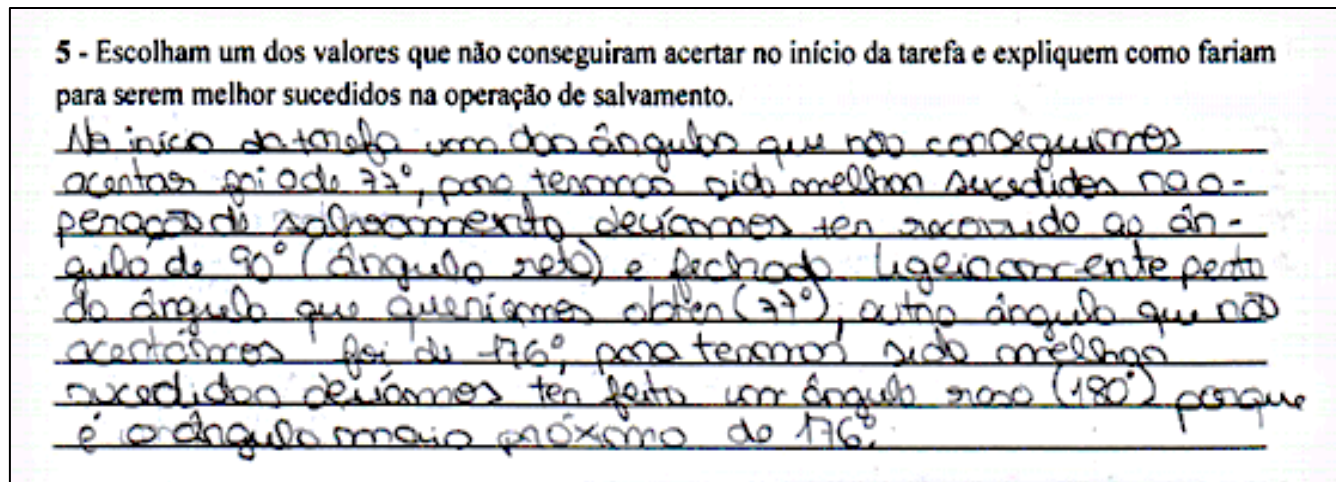 5 - Escolham um dos valores que não conseguiram acertar no início da tarefa e expliquem como fariam
para serem melhor sucedidos na operação de salvamento.
No início da tarefa um dos ângulos que não conseguimos
acertar foi o de 77°, para termmos sido melhor sucedidos na o-
peração de salvamento devíamos ter recorrido ao ân-
gulo de 90° (ângulo reto) e fechado ligeiramente perto
do ângulo que queríamos obter (77°), outro ângulo que não
acertámos foi de 176°, para termmos sido melhor
sucedidos devíamos ter feito um ângulo raso (180°) porque
é o ângulo mais próximo de 176°.